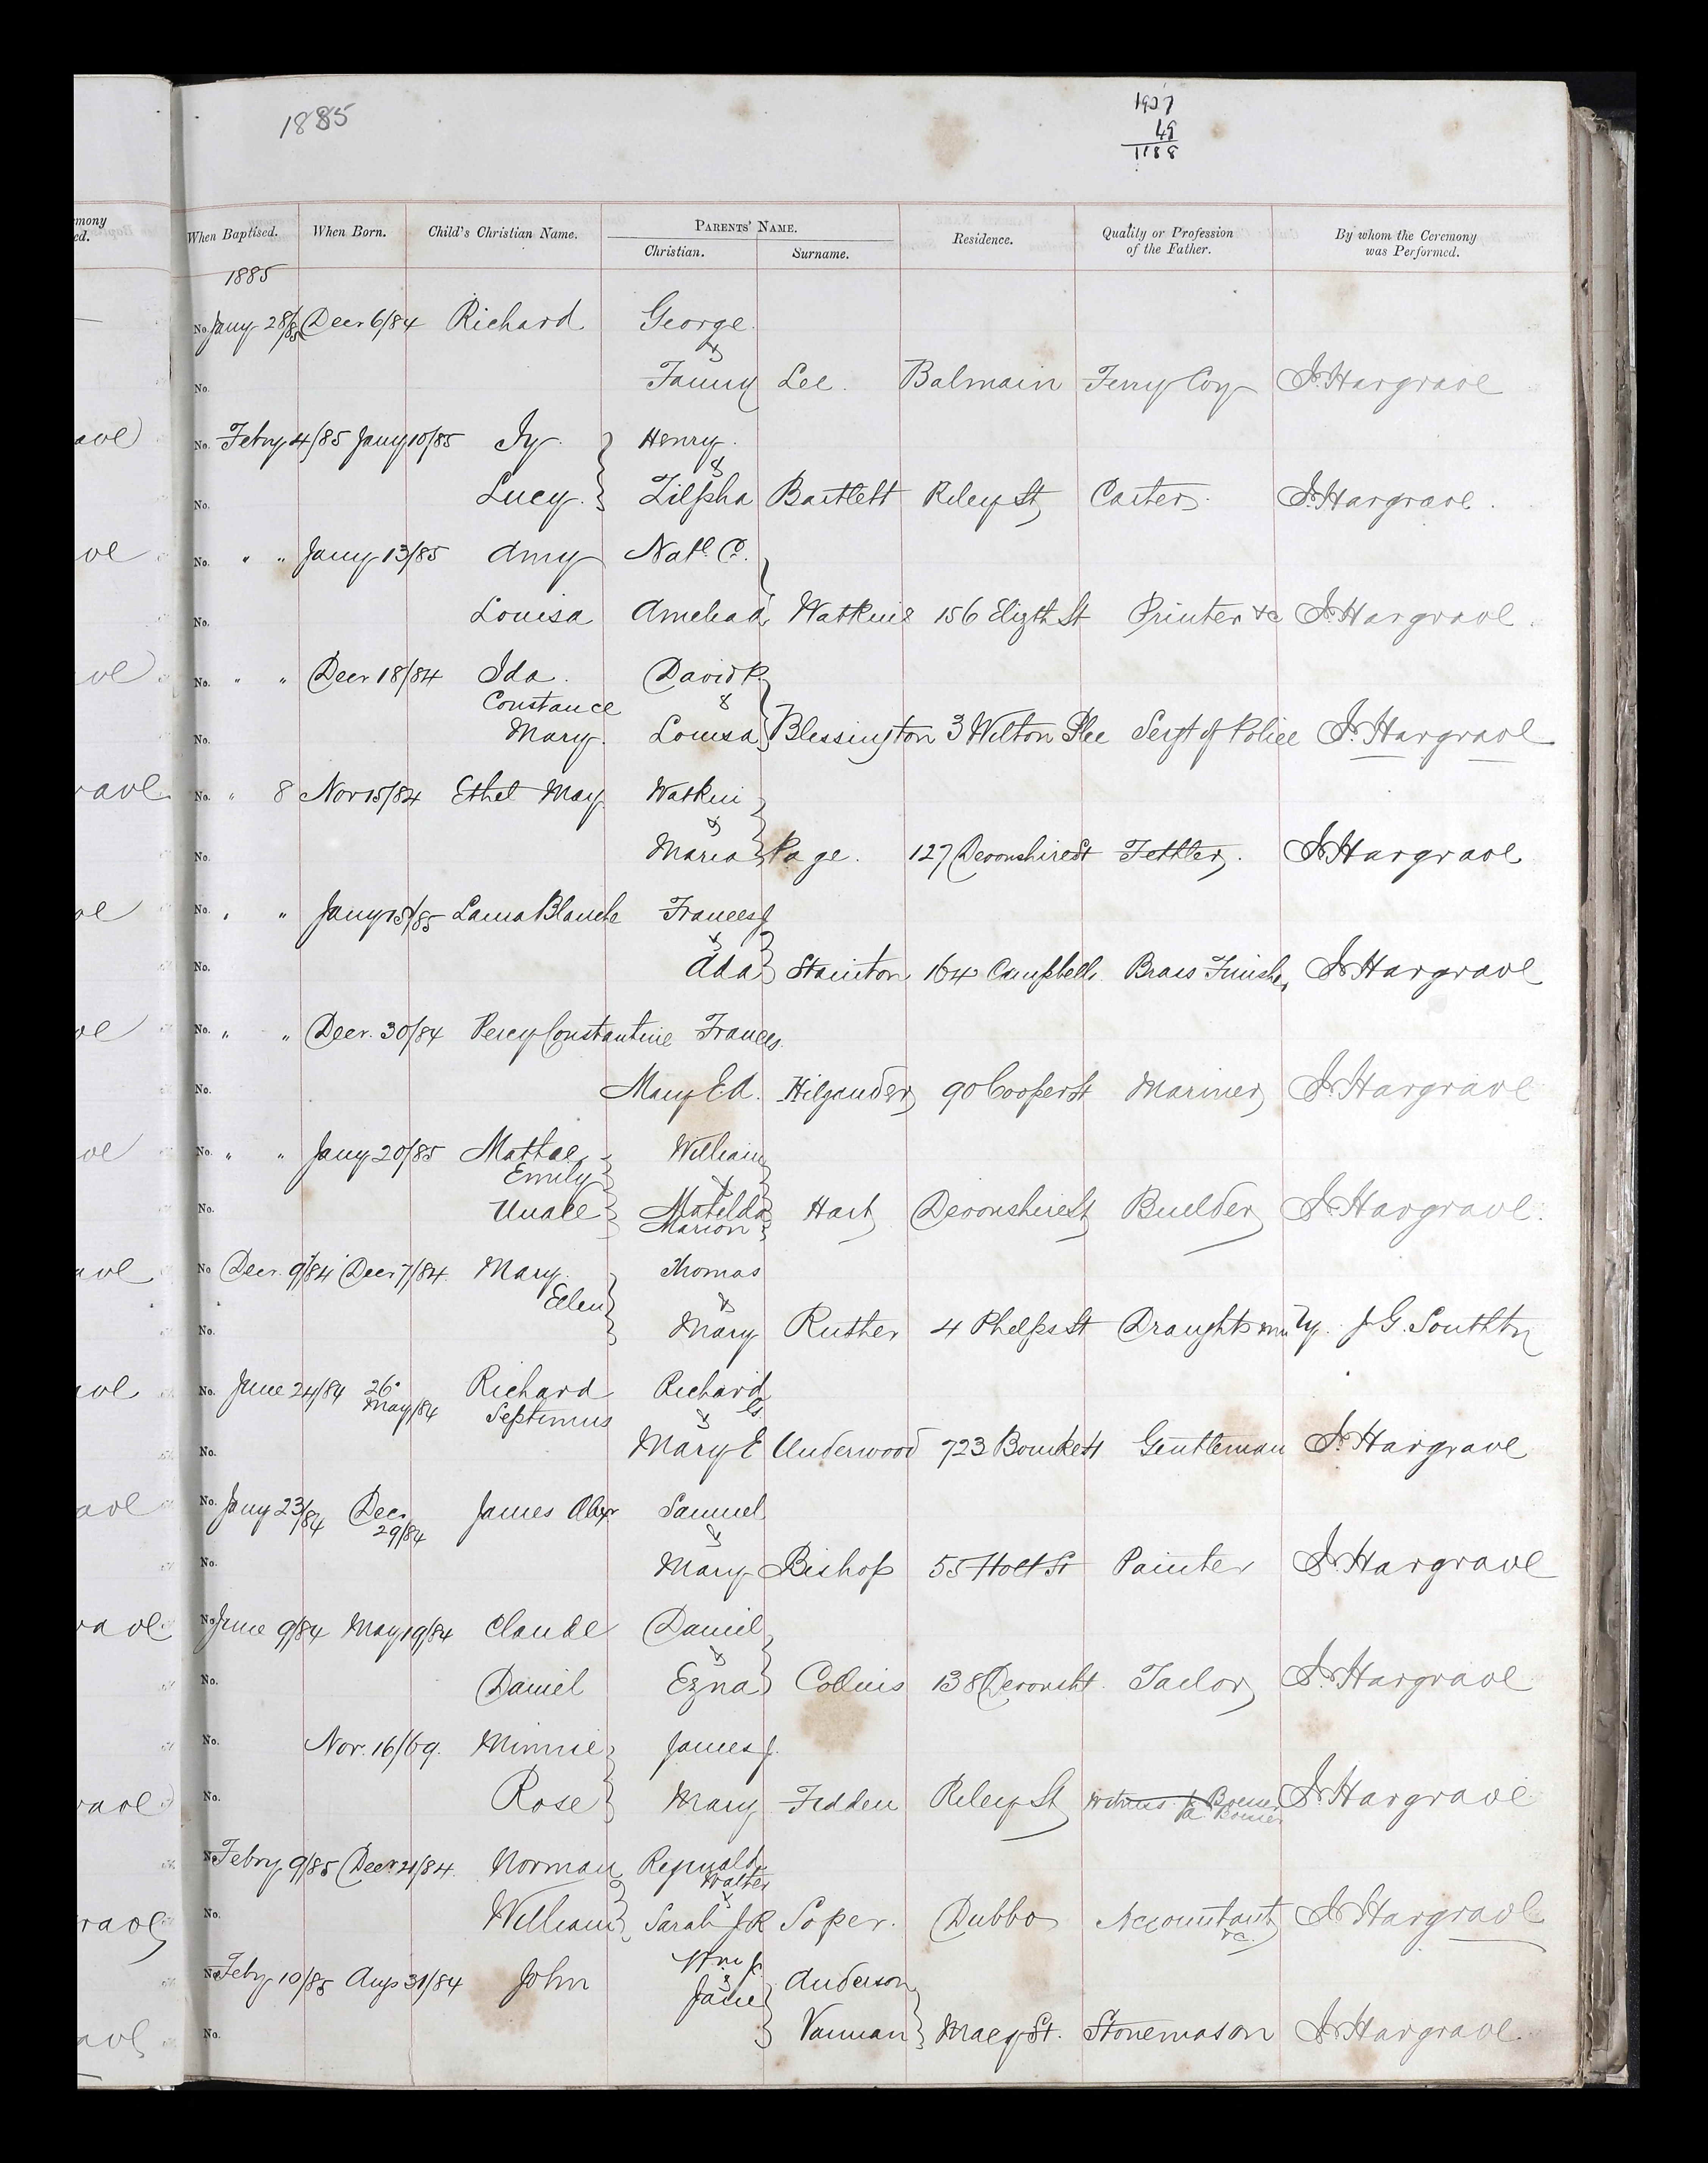 1885
1927
49
1188
emony
ed.
When Baptised. When Born. Child's Christian Name. PARENTS' NAME. Residence. Quality or Profession of the Father. By whom the Ceremony was Performed.
Christian. Surname.
1885
No. Jany 28/85 Decr 6/84 Richard George
&
No. Fanny Lee. Balmain Ferry Coy J. Hargrave
No. Febry 4/85 Jany 10/85 Ivy. Henry.
&
No. Lucy. Zilpha Bartlett Riley St Carter. J. Hargrave.
No. " " Jany 13/85 Amy Natl. C.
No. Louisa Amelia A. Watkins 156 Elizth St Printer &c J. Hargrave.
No. " " Decr 18/84 Ida. David P.
Constance &
No. Mary. Louisa Blessington 3 Wilton Plce Sergt of Police J. Hargrave
No. " 8 Novr 15/84 Ethel May Watkin
&
No. Maria Page. 127 Devonshire St Fettler. J. Hargrave
No. " " Jany 15/85 Laura Blanche Frances J
&
No. Ada Stainton 164 Campbell. Brass Finisher J. Hargrave
No. " " Decr. 30/84 Percy Constantine Frances
No. Mary E A. Hilzander 90 Cooper St Mariner J. Hargrave
No. " " Jany 20/85 William
Emily &
No. Matilda Hart Devonshire St Builder J. Hargrave.
Marion
No. Decr. 9/84 Decr 7/84 Mary. Thomas
Ellen &
No. Mary Ruther 4 Phelps St Draughtsman J G. Southby
No. June 24/84 26 May/84 Richard Richard
Septimus G &
No. Mary E Underwood 723 Bourke St Gentleman J. Hargrave
No. Jany 23/84 Dec 29/84 James Alexr Samuel
&
No. Mary Bishop 55 Holt St Painter J. Hargrave
No. June 9/84 May 19/84 Claude Daniel
&
No. Daniel Ezna Collins 138 Devonsh St. Tailor J. Hargrave
No. Nov. 16/69. Minnie James J.
No. Rose Mary Fedden Riley St Witness J. Hargrave
No. Febry 9/85 Decr. 21/84. Norman Reginald
Walter
&
No. William Sarah J R Soper. Dubbo Accountant &c. J. Hargrave
No. Feby 10/85 Aug 31/84 John Wm J. Anderson
&
Jane
No. Vannan Macq St. Stonemason J. Hargrave.